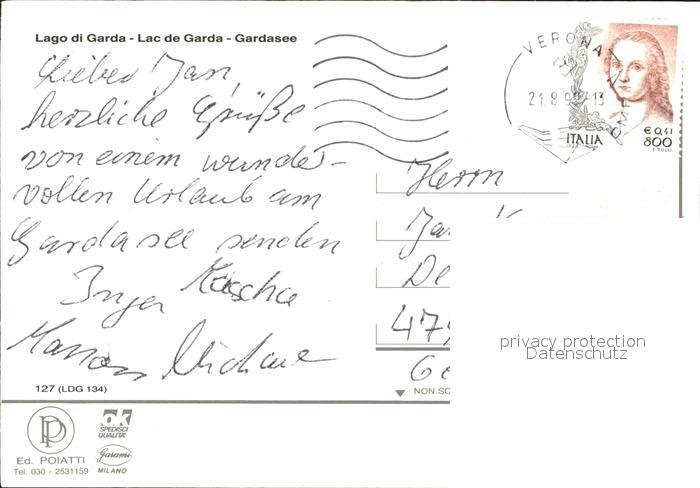 Lago di Garda - Lac de Garda - Gardasee
Lieber Jan,
herzliche Grüße
von einem wunder-
vollen Urlaub am
Gardasee senden
Inga
Michael
127 (LDG 134)
Ed. POIATTI
Tel. 030 - 2531159
OK
SPEDISCI
QUALITÀ
Garami
MILANO
VERONA
21.8.99-13
ITALIA
€ 0,41
800
F. TULLI
Herrn
Jan
De
47
Ge
NON SC
privacy protection
Datenschutz